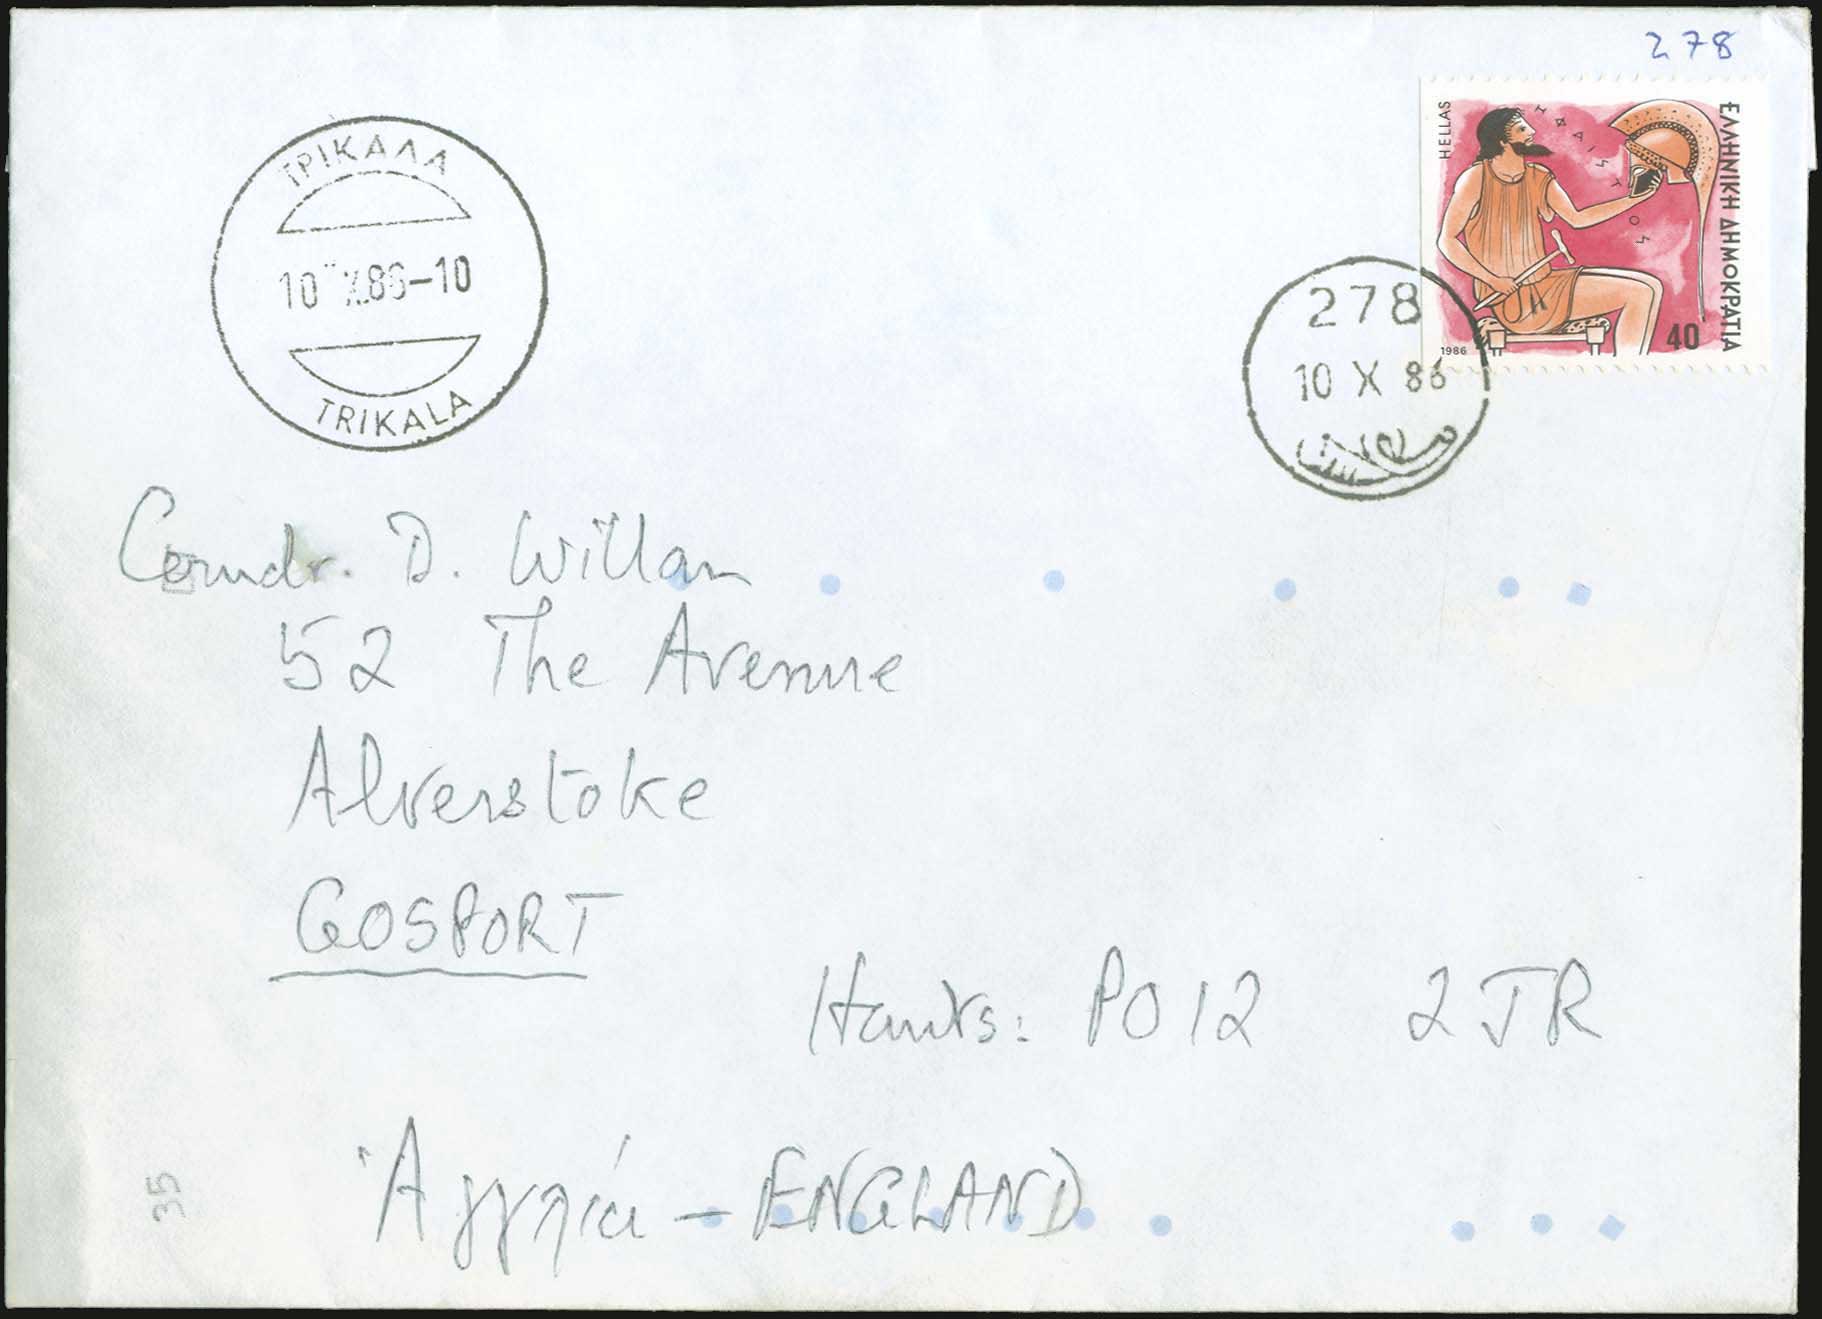 278
HELLAS
ΗΦΑΙΣΤΟΣ
ΕΛΛΗΝΙΚΗ ΔΗΜΟΚΡΑΤΙΑ
1986
40
ΤΡΙΚΑΛΑ
10 X.86-10
TRIKALA
278
10 X 86
Comdr. D. Willan
52 The Avenue
Alverstoke
GOSPORT
Hants: PO12 2JR
Ἀγγλία - ENGLAND
35